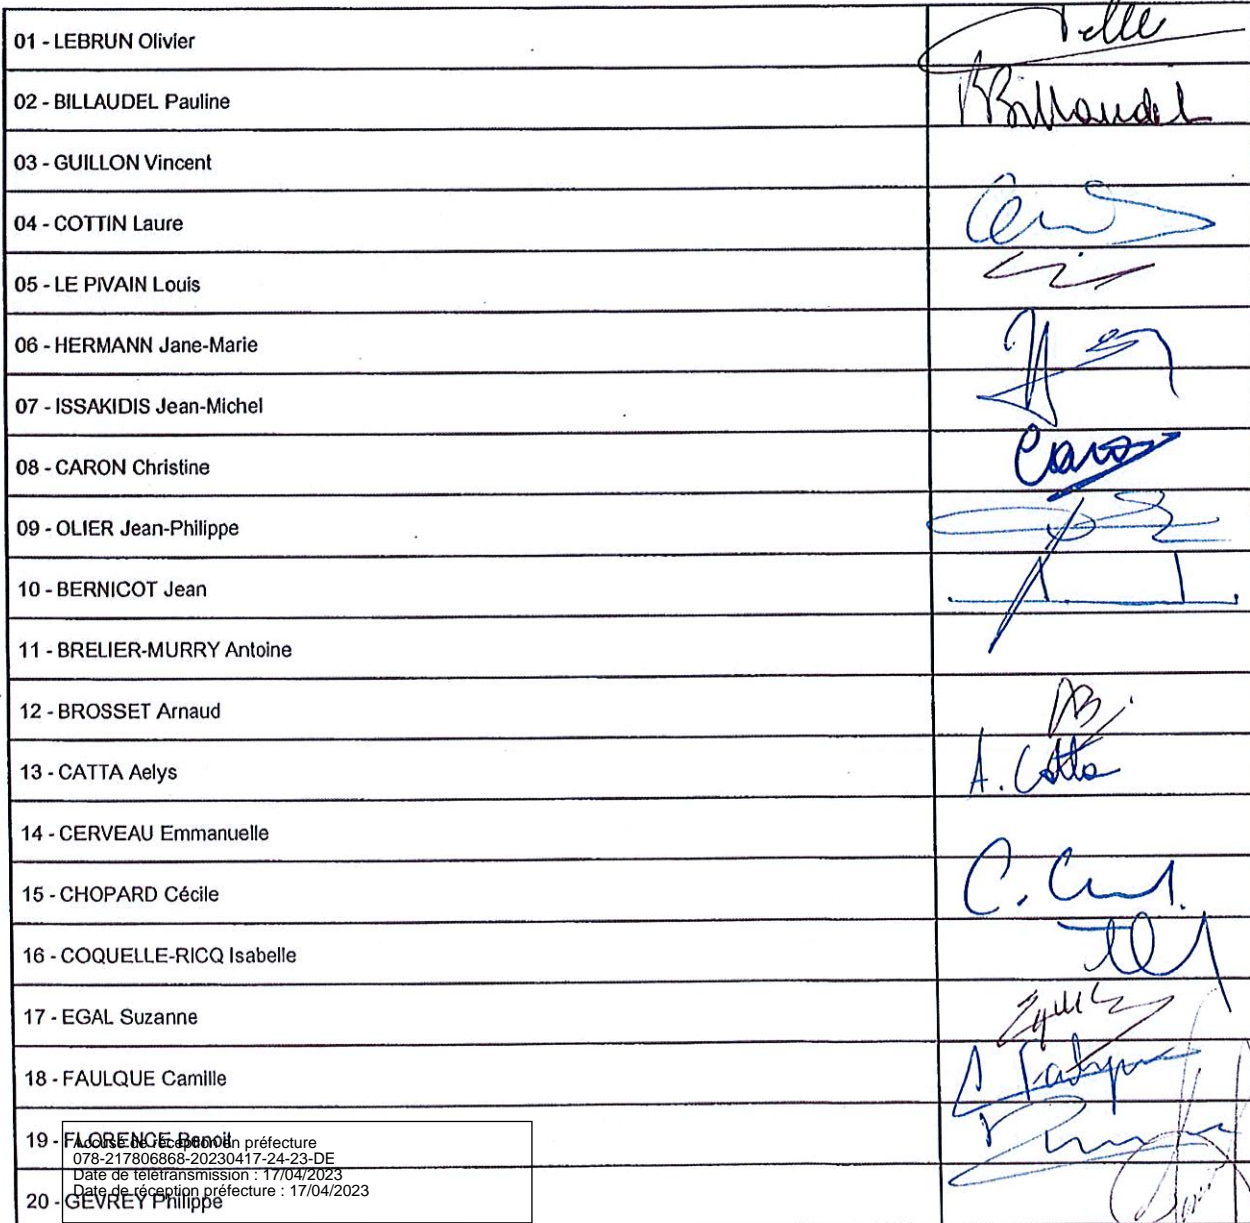 01 - LEBRUN Olivier
02 - BILLAUDEL Pauline
PBillaudel
03 - GUILLON Vincent
04 - COTTIN Laure
05 - LE PIVAIN Louis
06 - HERMANN Jane-Marie
07 - ISSAKIDIS Jean-Michel
08 - CARON Christine
Caron
09 - OLIER Jean-Philippe
10 - BERNICOT Jean
11 - BRELIER-MURRY Antoine
12 - BROSSET Arnaud
AB
13 - CATTA Aelys
A. Catta
14 - CERVEAU Emmanuelle
15 - CHOPARD Cécile
16 - COQUELLE-RICQ Isabelle
17 - EGAL Suzanne
18 - FAULQUE Camille
19 - FLORENCE Benoit
Accusé de réception en préfecture
078-217806868-20230417-24-23-DE
Date de télétransmission : 17/04/2023
Date de réception préfecture : 17/04/2023
20 - GEVREY Philippe